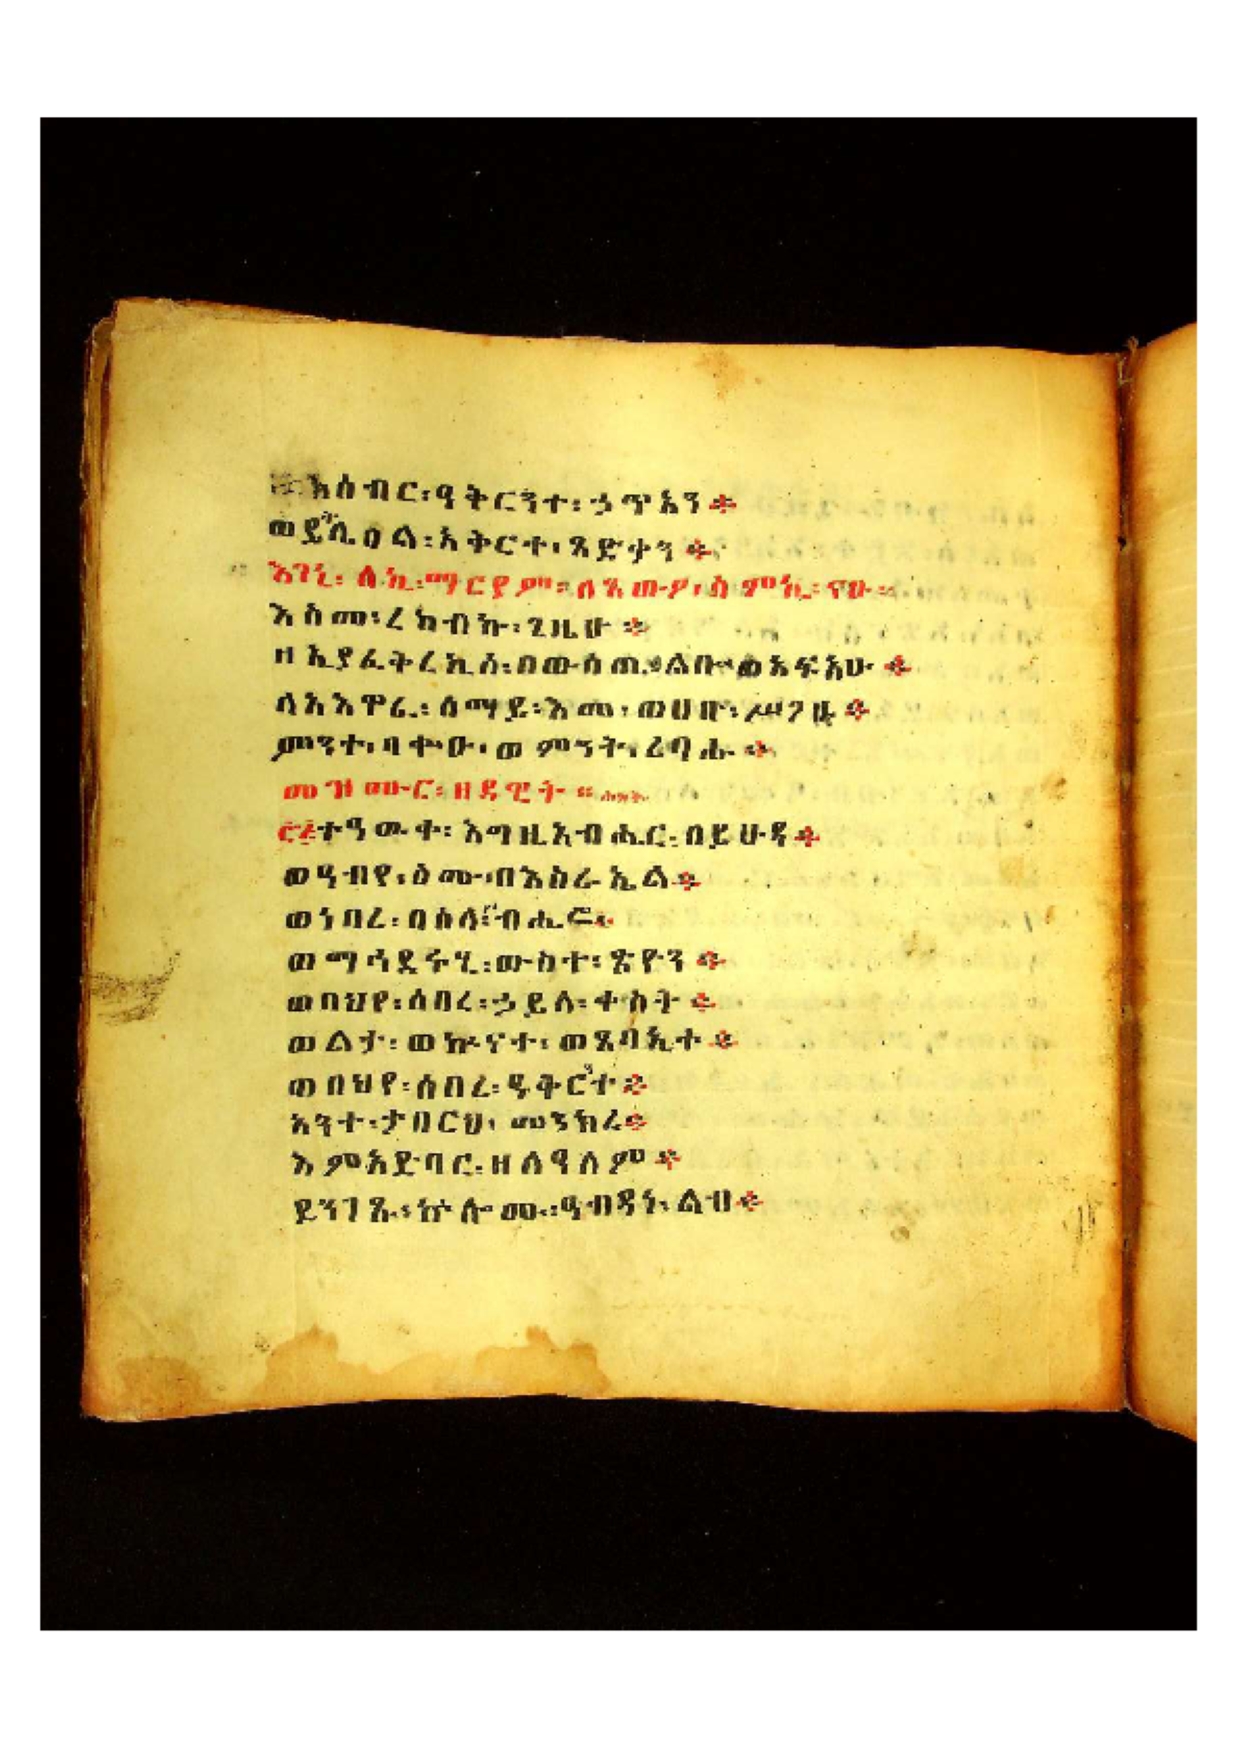 እሰብር፡ዓቅርንተ፡ኃጥአን።
ወይትሌዐል፡አቅርተ፡ጻድቃን።
እገኒ፡ ለኪ፡ማርያም፡ለጼውዖ፡ስምኪ፡ናሁ።
እስመ፡ረከብኩ፡ጊዜሁ።
ዘኢያፈቅረኪሰ፡በውስጠ፡ልቡ፡ወአፍአሁ።
ለአእዋፈ፡ሰማይ፡እመ፡ወሀቡ፡ሥጋሁ።
ምንተ፡በቍዑ፡ወምንት፡ረባሑ።
መዝሙር፡ዘዳዊት።
ተዓውቀ፡ እግዚአብሔር፡በይሁዳ።
ወዓብየ፡ስሙ፡በእስራኤል።
ወነበረ፡በሰላም፡ብሔሮ።
ወማኅደሩሂ፡ውስተ፡ጽዮን።
ወበህየ፡ሰበረ፡ኃይለ፡ቀስት።
ወልታ፡ወኵናተ፡ወጸባኢተ።
ወበህየ፡ሰበረ፡ዓቅርንተ።
አንተ፡ታበርህ፡ መንክረ።
እምአድባር፡ዘለዓለም።
ይንገጹ፡ኵሎሙ፡ዓብዳነ፡ልብ።